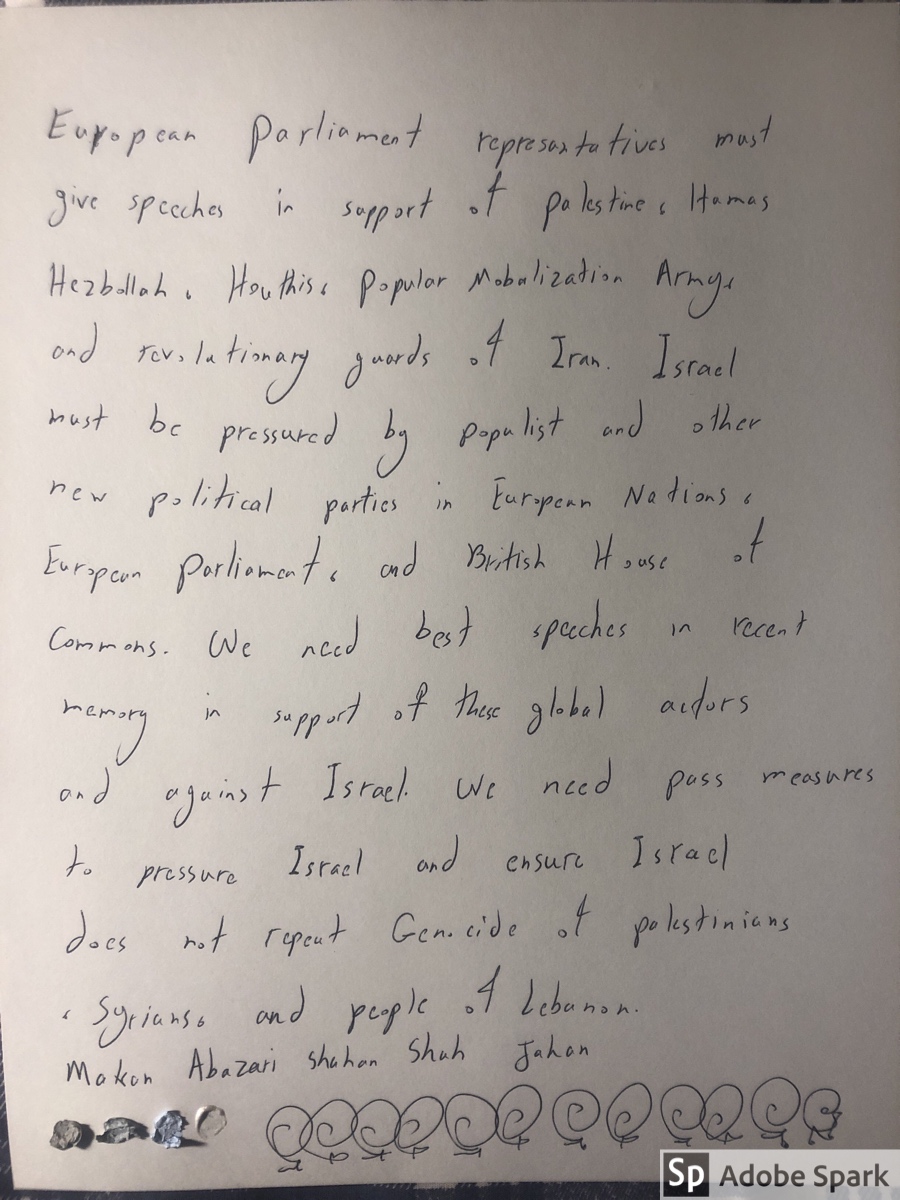 European Parliament represantatives must
give speeches in support of palestine, Hamas
Hezbollah, Houthis, Popular Mobalization Army,
and revolutionary guards of Iran. Israel
must be pressured by populist and other
new political parties in European Nations,
European Parliament, and British House of
Commons. We need best speeches in recent
memory in support of these global actors
and against Israel. We need pass measures
to pressure Israel and ensure Israel
does not repeat Genocide of palestinians
, Syrians, and people of Lebanon.
Makan Abazari Shahan Shah Jahan
Sp Adobe Spark